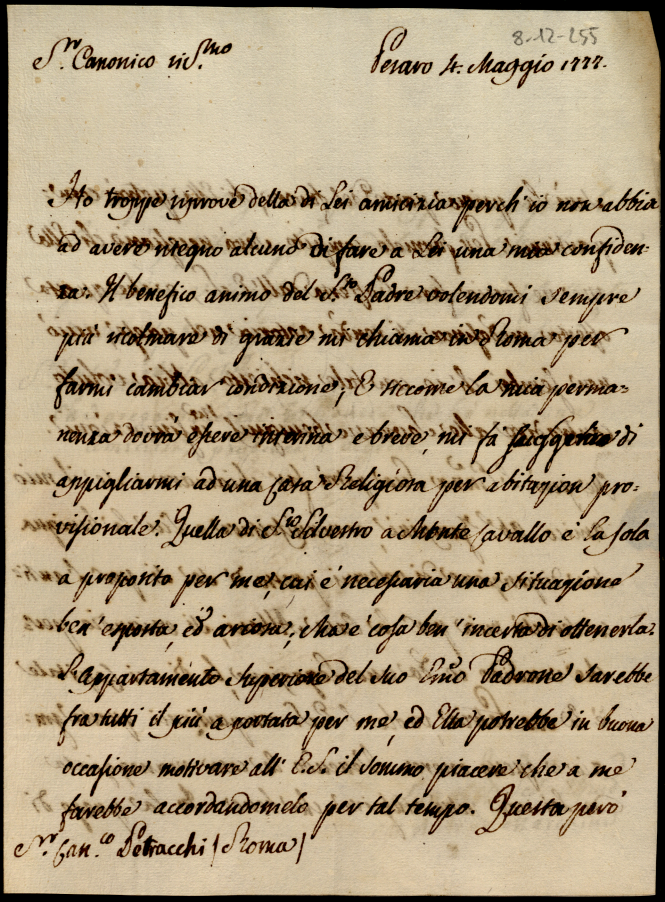 8-12-255
S.r Canonico riv.mo Pesaro 4. Maggio 1777.
Ho troppe riprove della di Lei amicizia perchi io non abbia
ad avere ritegno alcuno di fare a Lei una mia confiden-
za. Il benefico animo del S.to Padre volendomi sempre
più ricolmare di grazie mi chiama in Roma per
farmi cambiar condizione; E siccome la mia perma-
nenza dovrà essere interina e breve, mi fa di
appigliarmi ad una casa Religiosa per abitazion pro-
visionale. Quella di S.to Silvestro a Monte Cavallo è la sola
a proposito per me, cui è necessaria una situazione
ben' esposta, ed ariosa; Ma è cosa ben' incerta di ottenerla.
L'Appartamento Superiore del suo Emo Padrone sarebbe
fra tutti il più a portata per me, ed Ella potrebbe in buona
occasione motivare all' E.S. il sommo piacere che a me
farebbe accordandomelo per tal tempo. Questa però
S.r Can.co Petracchi / Roma /